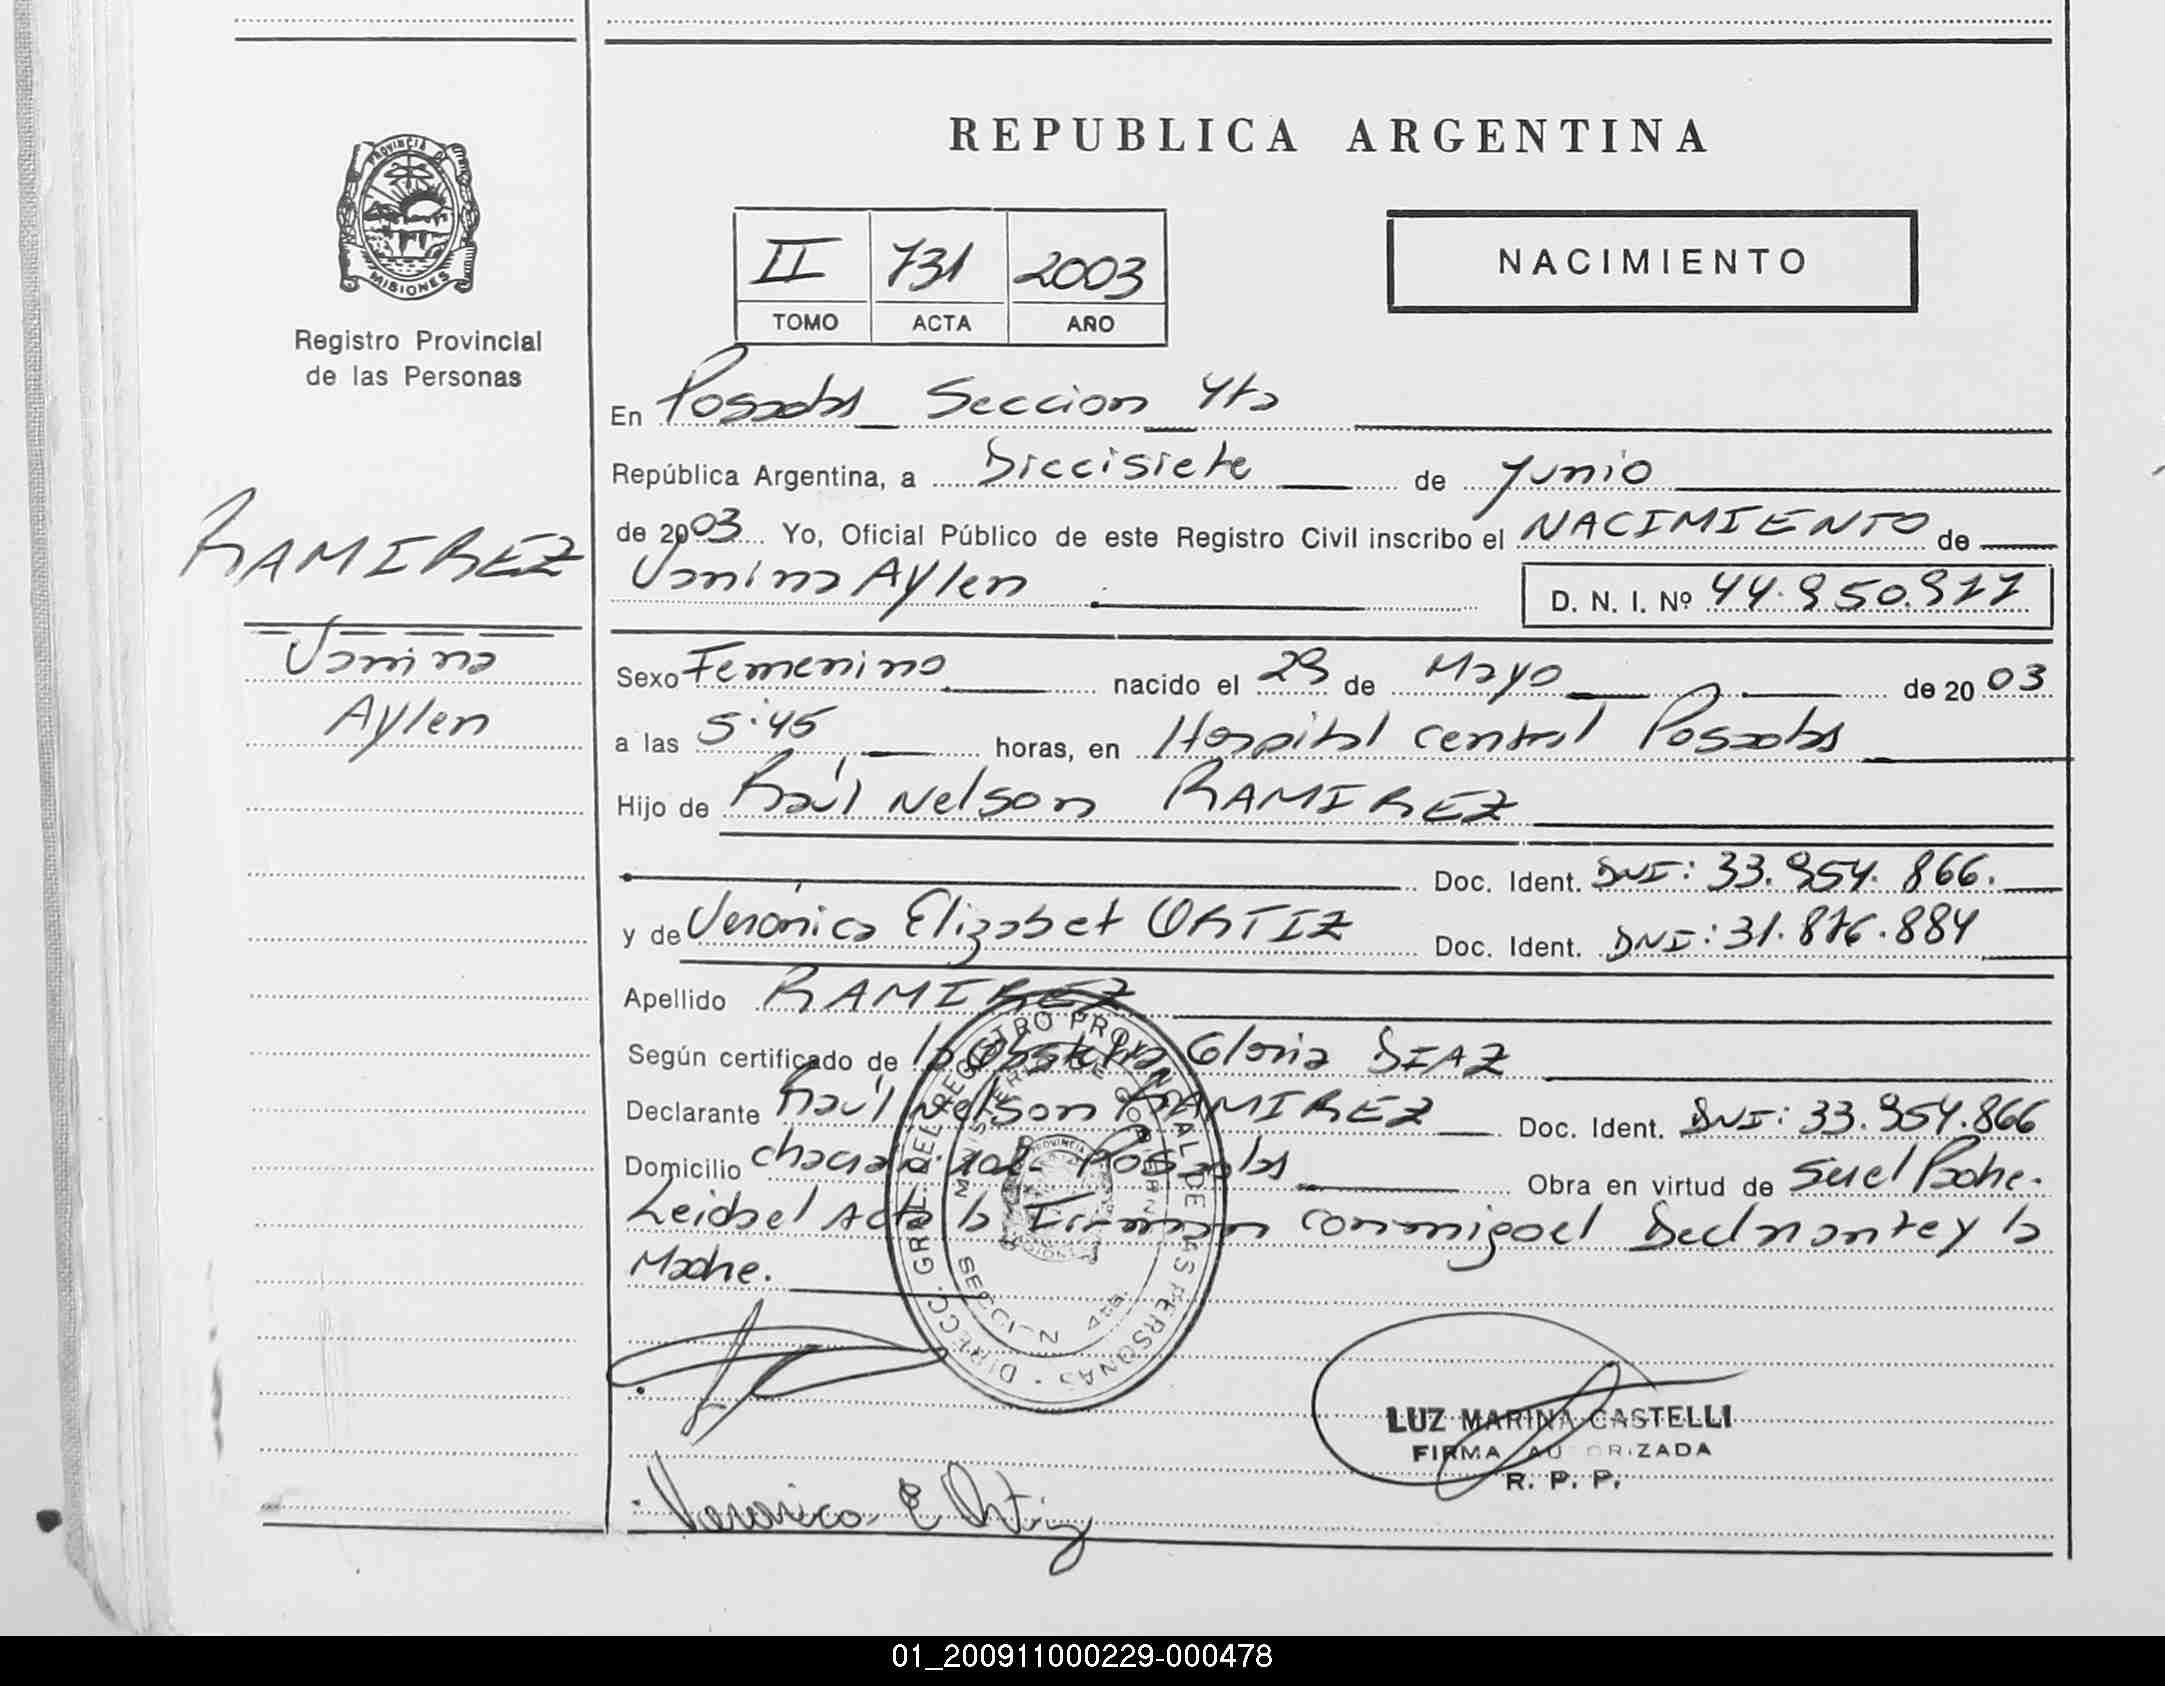 REPUBLICA ARGENTINA
PROVINCIA DE
MISIONES
Registro Provincial
de las Personas
II 731 2003
TOMO ACTA AÑO
NACIMIENTO
En Posadas Seccion 4ta
República Argentina, a Diecisiete de Junio
de 2003 Yo, Oficial Público de este Registro Civil inscribo el NACIMIENTO de
Vanina Aylen D. N. I. Nº 44.950.977
RAMIREZ
Vanina
Aylen
Sexo Femenino nacido el 29 de Mayo de 2003
a las 5:45 horas, en Hospital central Posadas
Hijo de Raúl Nelson RAMIREZ
Doc. Ident. DNI: 33.954.866.
y de Verónica Elizabet ORTIZ Doc. Ident. DNI: 31.876.884
Apellido RAMIREZ
Según certificado de la Obstetra Gloria DIAZ
Declarante Raúl Nelson RAMIREZ Doc. Ident. DNI: 33.954.866
Domicilio Posadas Obra en virtud de ser el Padre.
Leida el Acta la Firman conmigo el Declarante y la
Madre.
DIRECC. GRAL. DEL REGISTRO PROVINCIAL DE LAS PERSONAS
MINISTERIO DE GOBIERNO
SECCION 4ta.
LUZ MARINA CASTELLI
FIRMA AUTORIZADA
R. P. P.
Veronica E Ortiz
01_200911000229-000478